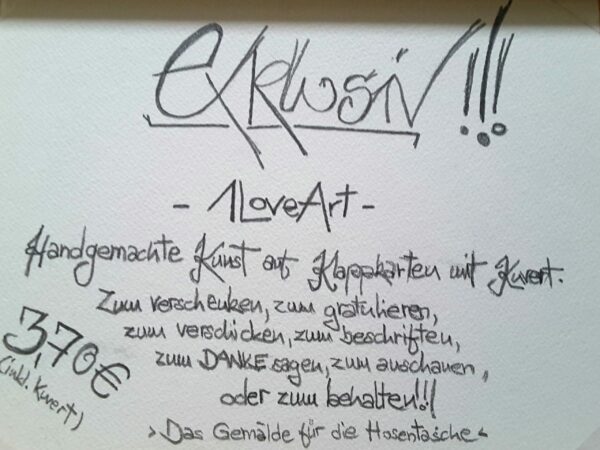 exklusiv!!!
- 1LoveArt -
Handgemachte Kunst auf Klappkarten mit Kuvert.
Zum verschenken, zum gratulieren,
zum verschicken, zum beschriften,
zum DANKE sagen, zum anschauen,
oder zum behalten!!!
3,70€
(inkl. Kuvert)
>Das Gemälde für die Hosentasche<